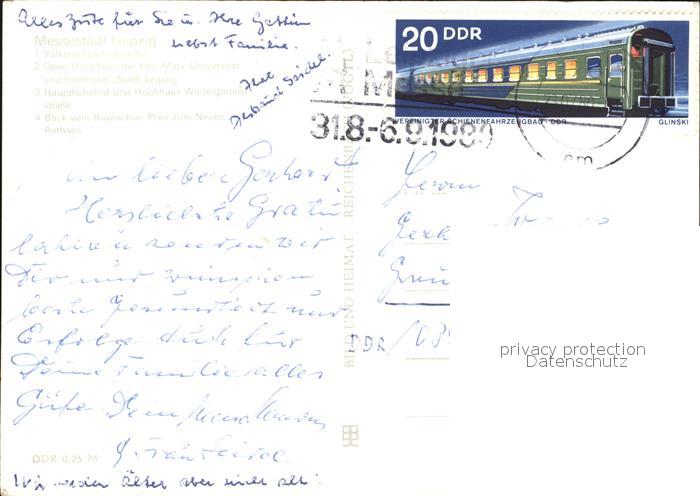 Alles Gute für Sie u. Ihre Gattin
nebst Familie.
Ihre
Messestadt Leipzig
1 Völkerschlachtdenkmal
2 Oper, Hochhaus der Karl-Marx-Universität
und Interhotel „Stadt Leipzig"
3 Hauptbahnhof und Hochhaus Wintergarten-
straße
4 Blick vom Bayrischen Platz zum Neuen
Rathaus
20 DDR
VEREINIGTER SCHIENENFAHRZEUGBAU · DDR
GLINSKI
31.8.-6.9.1980
lieber Gerhard!
Herzlichste Gratu
lation senden wir
Dir und wünschen
beste Gesundheit und
Erfolge. Auch für
Deine Familie alles
Gute. Dein
Wir werden älter aber nicht alt!
DDR 0,25 M
BILD UND HEIMAT · REICHENBACH (VOGTL)
Herrn
DDR
privacy protection
Datenschutz